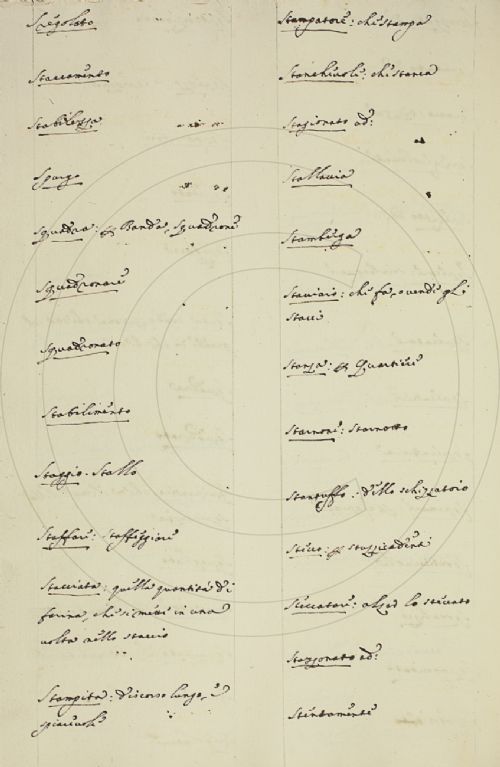 Sregolato
Staccamento
Stabilezza
Spurgo
Squadra: p Banda, Squadrone
Squadronare
Squadronato
Stabilimento
Staggio. Stallo
Staffare: staffeggiare
Stacciata: quella quantità di
farina, che si mette in una
volta nello staccio
Stampita: discorso lungo, e
spiacevole
Stampatore: chi stampa
Stancheuole: che stanca
Stagionato ad:
Stallaria
Stamberga
Stacciaio: chi fa, o vende gli
stacci
Stanza: p Quartiere
Starnone: Starnotto
Stantuffo: dello schizzatoio
Stecco: p stuzzicadenti
Steccatore: lo steccato
Stazzonato ad:
Stentamente